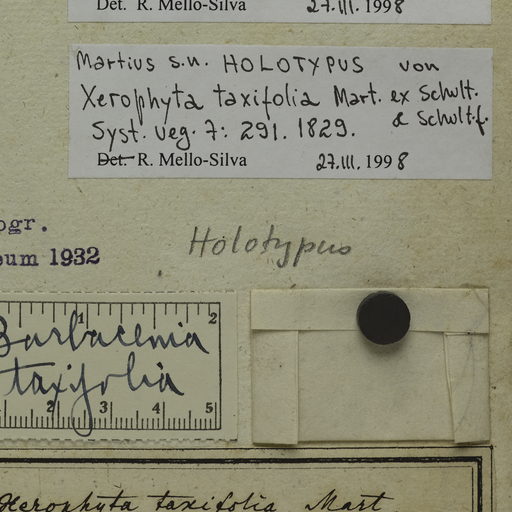 Det. R. Mello-Silva 27.III.1998
Martius s.n. HOLOTYPUS von
Xerophyta taxifolia Mart. ex Schult.
& Schult.f.
Syst. veg. 7: 291. 1829.
Det. R. Mello-Silva 27.III.1998
ogr.
eum 1932
Holotypus
1 2
Barbacenia
taxifolia
1 2 3 4 5
Xerophyta taxifolia Mart